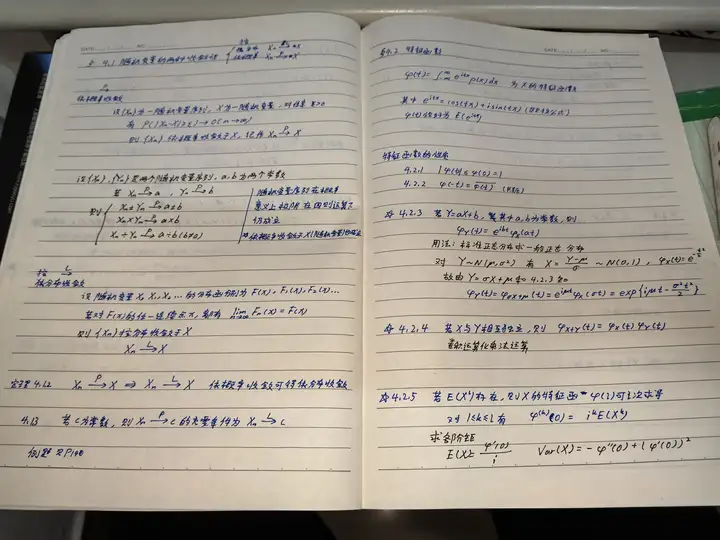 § 4.1 随机变量的两种收敛性
按分布 Xn →L X
依概率 Xn →P X
依概率收敛
设{Xn}为一随机变量序列, X为一随机变量, 对任意 ε>0
有 P(|Xn-X|≥ε)→0(n→∞)
则{Xn}依概率收敛于X, 记作 Xn →P X
设{Xn}, {Yn}是两个随机变量序列, a, b为两个常数
若 Xn →P a , Yn →P b
则 { Xn±Yn →P a±b
Xn×Yn →P a×b
Xn÷Yn →P a÷b (b≠0)
随机变量序列在概率
意义上极限在四则运算下
仍成立
按分布收敛
设随机变量 X, X1, X2… 的分布函数分别为 F(x), F1(x), F2(x)…
若对F(x)的任一连续点x, 都有 lim n→∞ Fn(x) = F(x)
则{Xn}按分布收敛于X
Xn →L X
定理 4.1.2 Xn →P X ⇒ Xn →L X 依概率收敛可得依分布收敛
4.1.3 若c为常数, 则 Xn →P c 的充要条件为 Xn →L c
例题 见P190
§4.2 特征函数
φ(t) = ∫ e^{itx} p(x)dx 为X的特征函数
其中 e^{itx} = cos(tx) + i sin(tx) (欧拉公式)
φ(t) 也可写为 E(e^{itx})
特征函数的性质
4.2.1 |φ(t)| ≤ φ(0) = 1
4.2.2 φ(-t) = φ(t) (共轭)
4.2.3 若 Y=aX+b, 其中 a, b为常数, 则
φY(t) = e^{ibt} φX(at)
用法: 标准正态分布求一般正态分布
对 Y~N(μ, σ²) 有 X = (Y-μ)/σ ~ N(0,1), φX(t) = e^{-t²/2}
故由 Y=σX+μ 和 4.2.3 知
φY(t) = φσX+μ(t) = e^{iμt} φX(σt) = exp{iμt - σ²t²/2}
4.2.4 若X与Y相互独立, 则 φX+Y(t) = φX(t) φY(t)
卷积运算化乘法运算
4.2.5 若 E(X^l) 存在, 则X的特征函数 φ(t) 可l次求导
对 1≤k≤l 有 φ^(k)(0) = i^k E(X^k)
求各阶矩
E(X) = φ'(0)/i Var(X) = -φ''(0) + (φ'(0))²